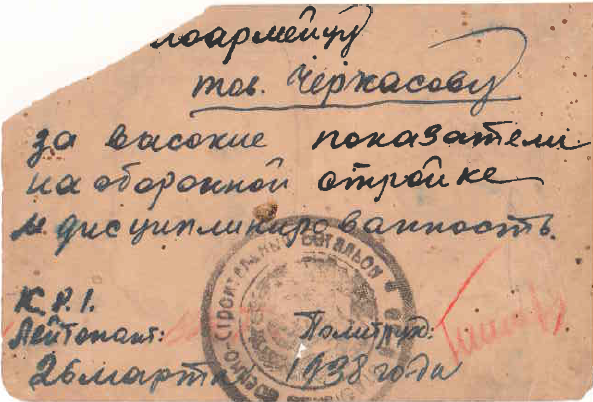 лоармейцу
тов. Черкасову
за высокие показатели
на оборонной стройке
и дисциплинированность.
К.Р.1.
Лейтенант: Политрук:
26 марта 1938 года
Военно строительный батальон